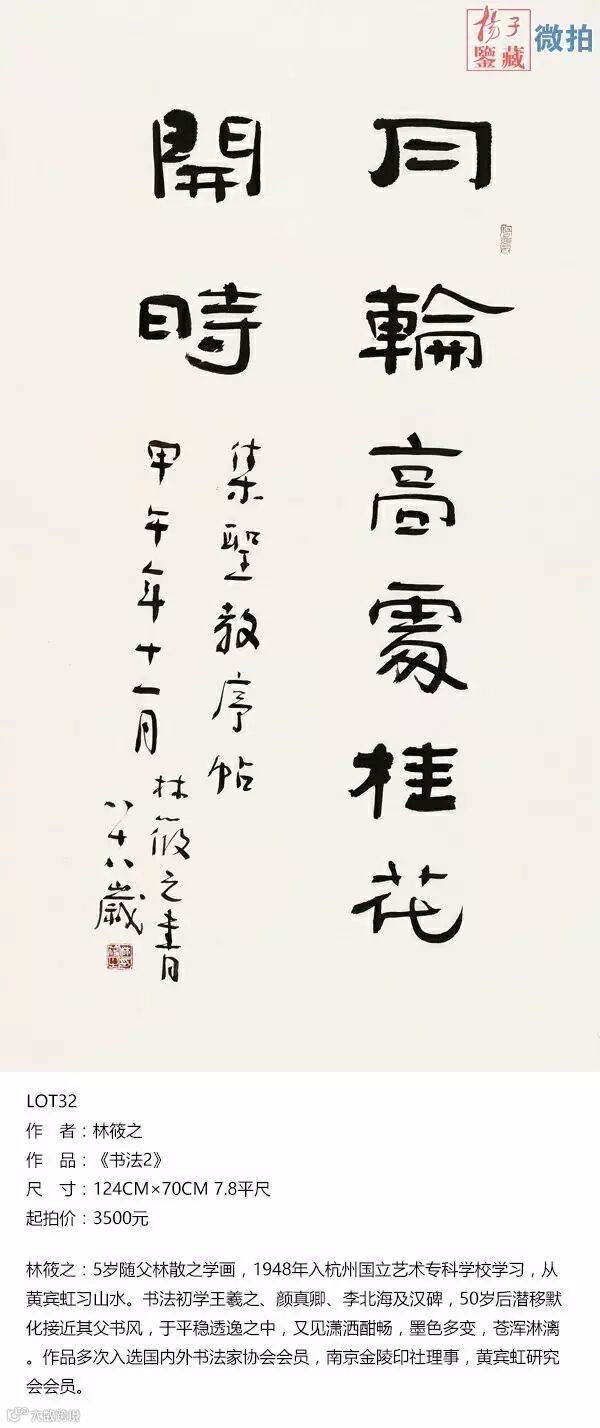 揚子
鑒藏
微拍
月輪高處桂花
開時
集聖教序帖
甲午年十一月
林筱之書
八十八歲
LOT32
作 者：林筱之
作 品：《书法2》
尺 寸：124CM×70CM 7.8平尺
起拍价：3500元
林筱之：5岁随父林散之学画，1948年入杭州国立艺术专科学校学习，从
黄宾虹习山水。书法初学王羲之、颜真卿、李北海及汉碑，50岁后潜移默
化接近其父书风，于平稳透逸之中，又见潇洒酣畅，墨色多变，苍浑淋漓
。作品多次入选国内外书法家协会会员，南京金陵印社理事，黄宾虹研究
会会员。
大数跨境